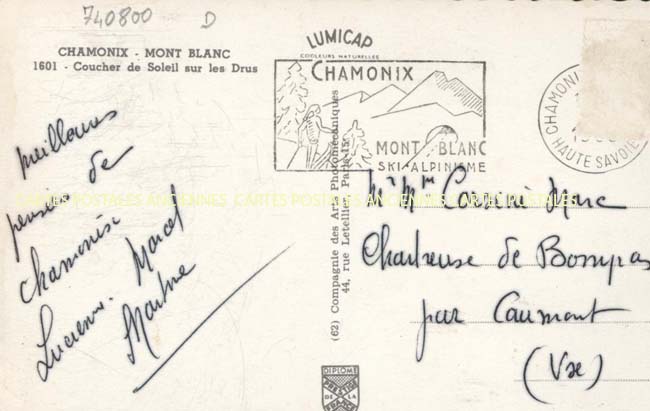 740800 D
CHAMONIX - MONT BLANC
1601 - Coucher de Soleil sur les Drus
LUMICAP
COULEURS NATURELLES
CHAMONIX
MONT BLANC
SKI-ALPINISME
CHAMONI
HAUTE SAVOIE
meilleures
pensées de
chamonix
Lucienne. Marcel
Martine
(62) Compagnie des Arts Photomécaniques
44, rue Letellier, Paris-15e
Mr Mme Marc
Chartreuse de Bompas
par Caumont
(Vse)
DIPLOME
PRESTIGE
DE LA
FRANCE
CARTES POSTALES ANCIENNES CARTES POSTALES ANCIENNES CARTES POSTALES